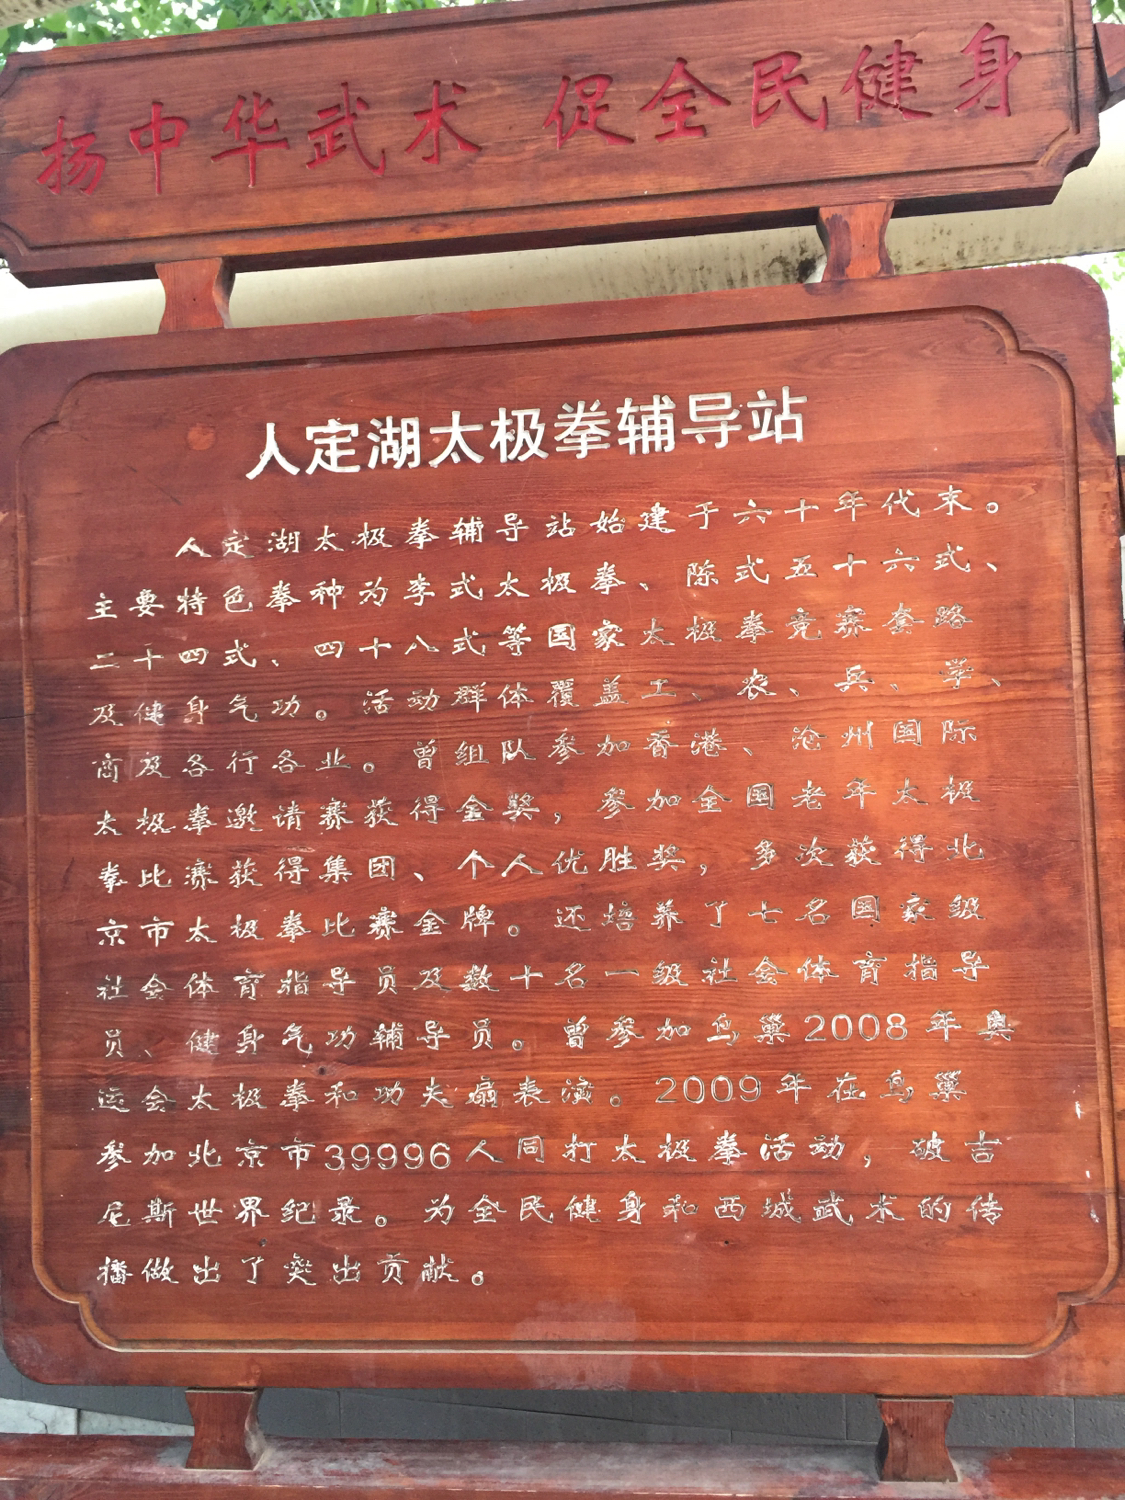 扬中华武术 促全民健身
人定湖太极拳辅导站
人定湖太极拳辅导站始建于六十年代末。
主要特色拳种为李式太极拳、陈式五十六式、
二十四式、四十八式等国家太极拳竞赛套路
及健身气功。活动群体覆盖工、农、兵、学、
商及各行各业。曾组队参加香港、沧州国际
太极拳邀请赛获得金奖，参加全国老年太极
拳比赛获得集团、个人优胜奖，多次获得北
京市太极拳比赛金牌。还培养了七名国家级
社会体育指导员及数十名一级社会体育指导
员、健身气功辅导员。曾参加鸟巢2008年奥
运会太极拳和功夫扇表演。2009年在鸟巢
参加北京市39996人同打太极拳活动，破吉
尼斯世界纪录。为全民健身和西城武术的传
播做出了突出贡献。